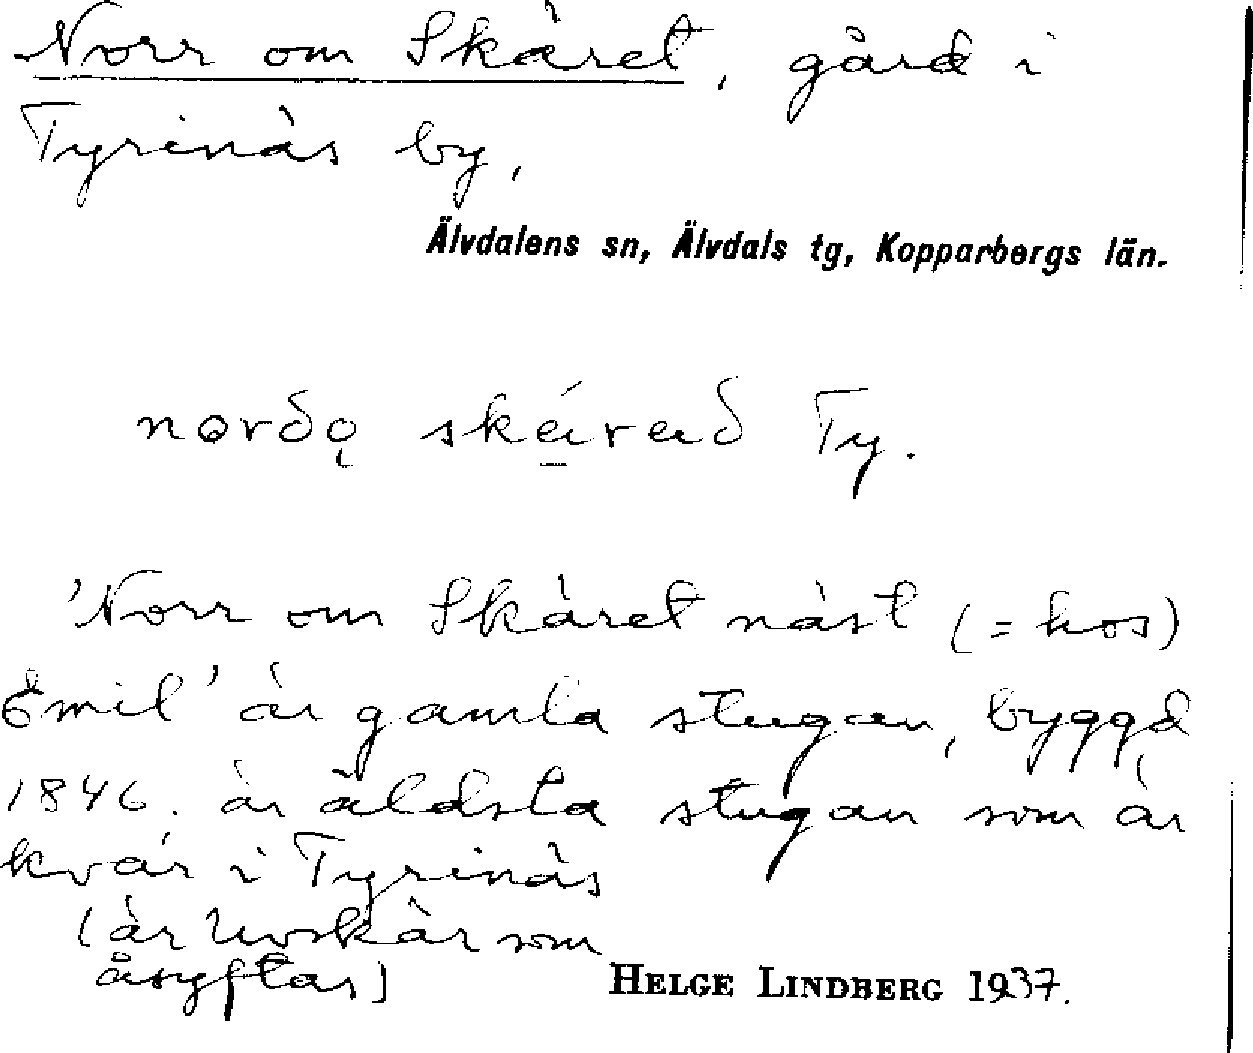 Norr om Skäret, gård i
Tyrinäs by,
Älvdalens sn, Älvdals tg, Kopparbergs län.
nørðǫ skǽrað Ty.
'Norr om Skäret näst (= hos)
Emil' är gamla stugan, byggd
1846. är äldsta stugan som är
kvar i Tyrinäs
(är Uvskär som
åsyftas)
HELGE LINDBERG 1937.